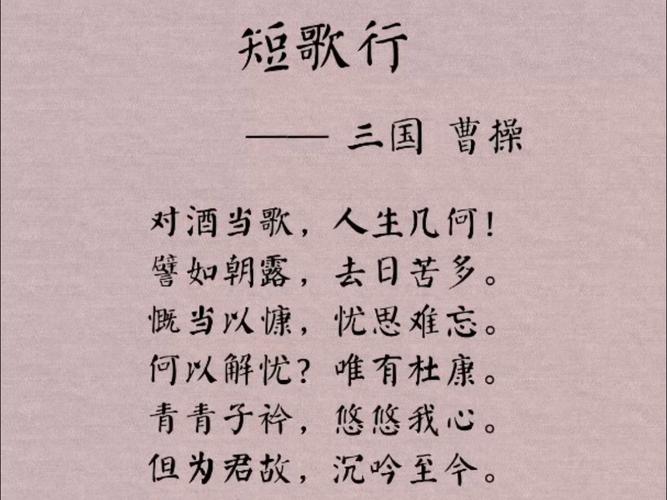 短歌行
—— 三国 曹操
对酒当歌，人生几何！
譬如朝露，去日苦多。
慨当以慷，忧思难忘。
何以解忧？唯有杜康。
青青子衿，悠悠我心。
但为君故，沉吟至今。